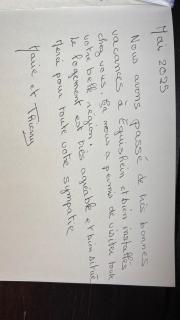 Mai 2025
Nous avons passé de très bonnes
vacances à Eguisheim et bien installés
chez vous. Ça nous a permis de visiter toute
votre belle région.
Le logement est très agréable et bien situé
Merci pour toute votre sympathie
Marie et Thierry